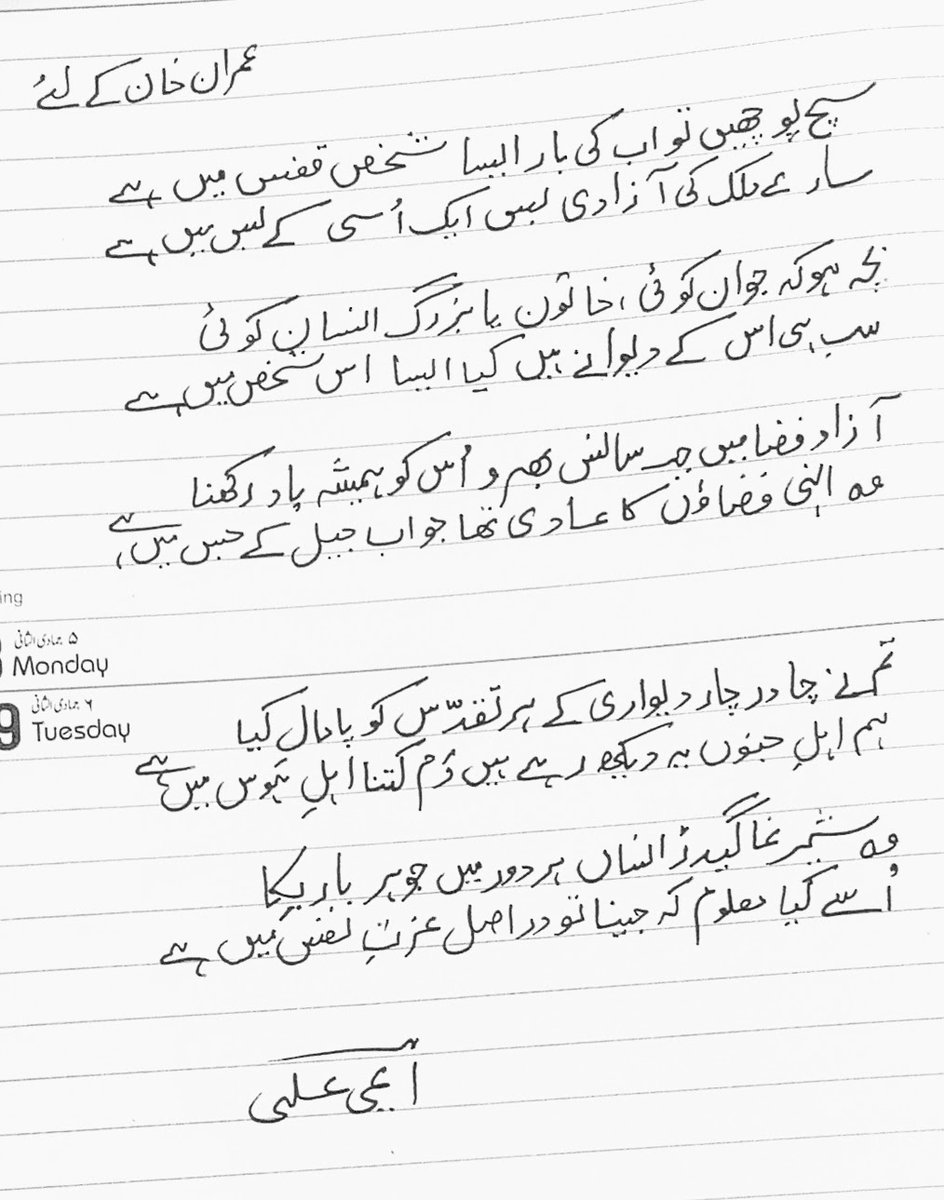 عمران خان کے لئے
سچ پوچھیں تو اب کی بار ایسا شخص قفس میں ہے
سارے ملک کی آزادی بس ایک اُسی کے بس میں ہے
بچہ ہو کہ جوان کوئی، خاتون یا بزرگ انسان کوئی
سب ہی اس کے دیوانے ہیں کیا ایسا اس شخص میں ہے
آزاد فضا میں جب سانس بھرو اُس کو ہمیشہ یاد رکھنا
وہ انہی فضاؤں کا عادی تھا جو اب جیل کے حبس میں ہے
ing
۵ جمادی الثانی
Monday
9
۶ جمادی الثانی
Tuesday
تم نے چادر چار دیواری کے ہر تقدّس کو پامال کیا
ہم اہلِ جنوں یہ دیکھ رہے ہیں دَم کتنا اہلِ ہَوس میں ہے
وہ شیر نما گیدڑ انساں ہر دور میں جو ہر بار بِکا
اُسے کیا معلوم کہ جینا تو دراصل عزتِ نفس میں ہے
علی